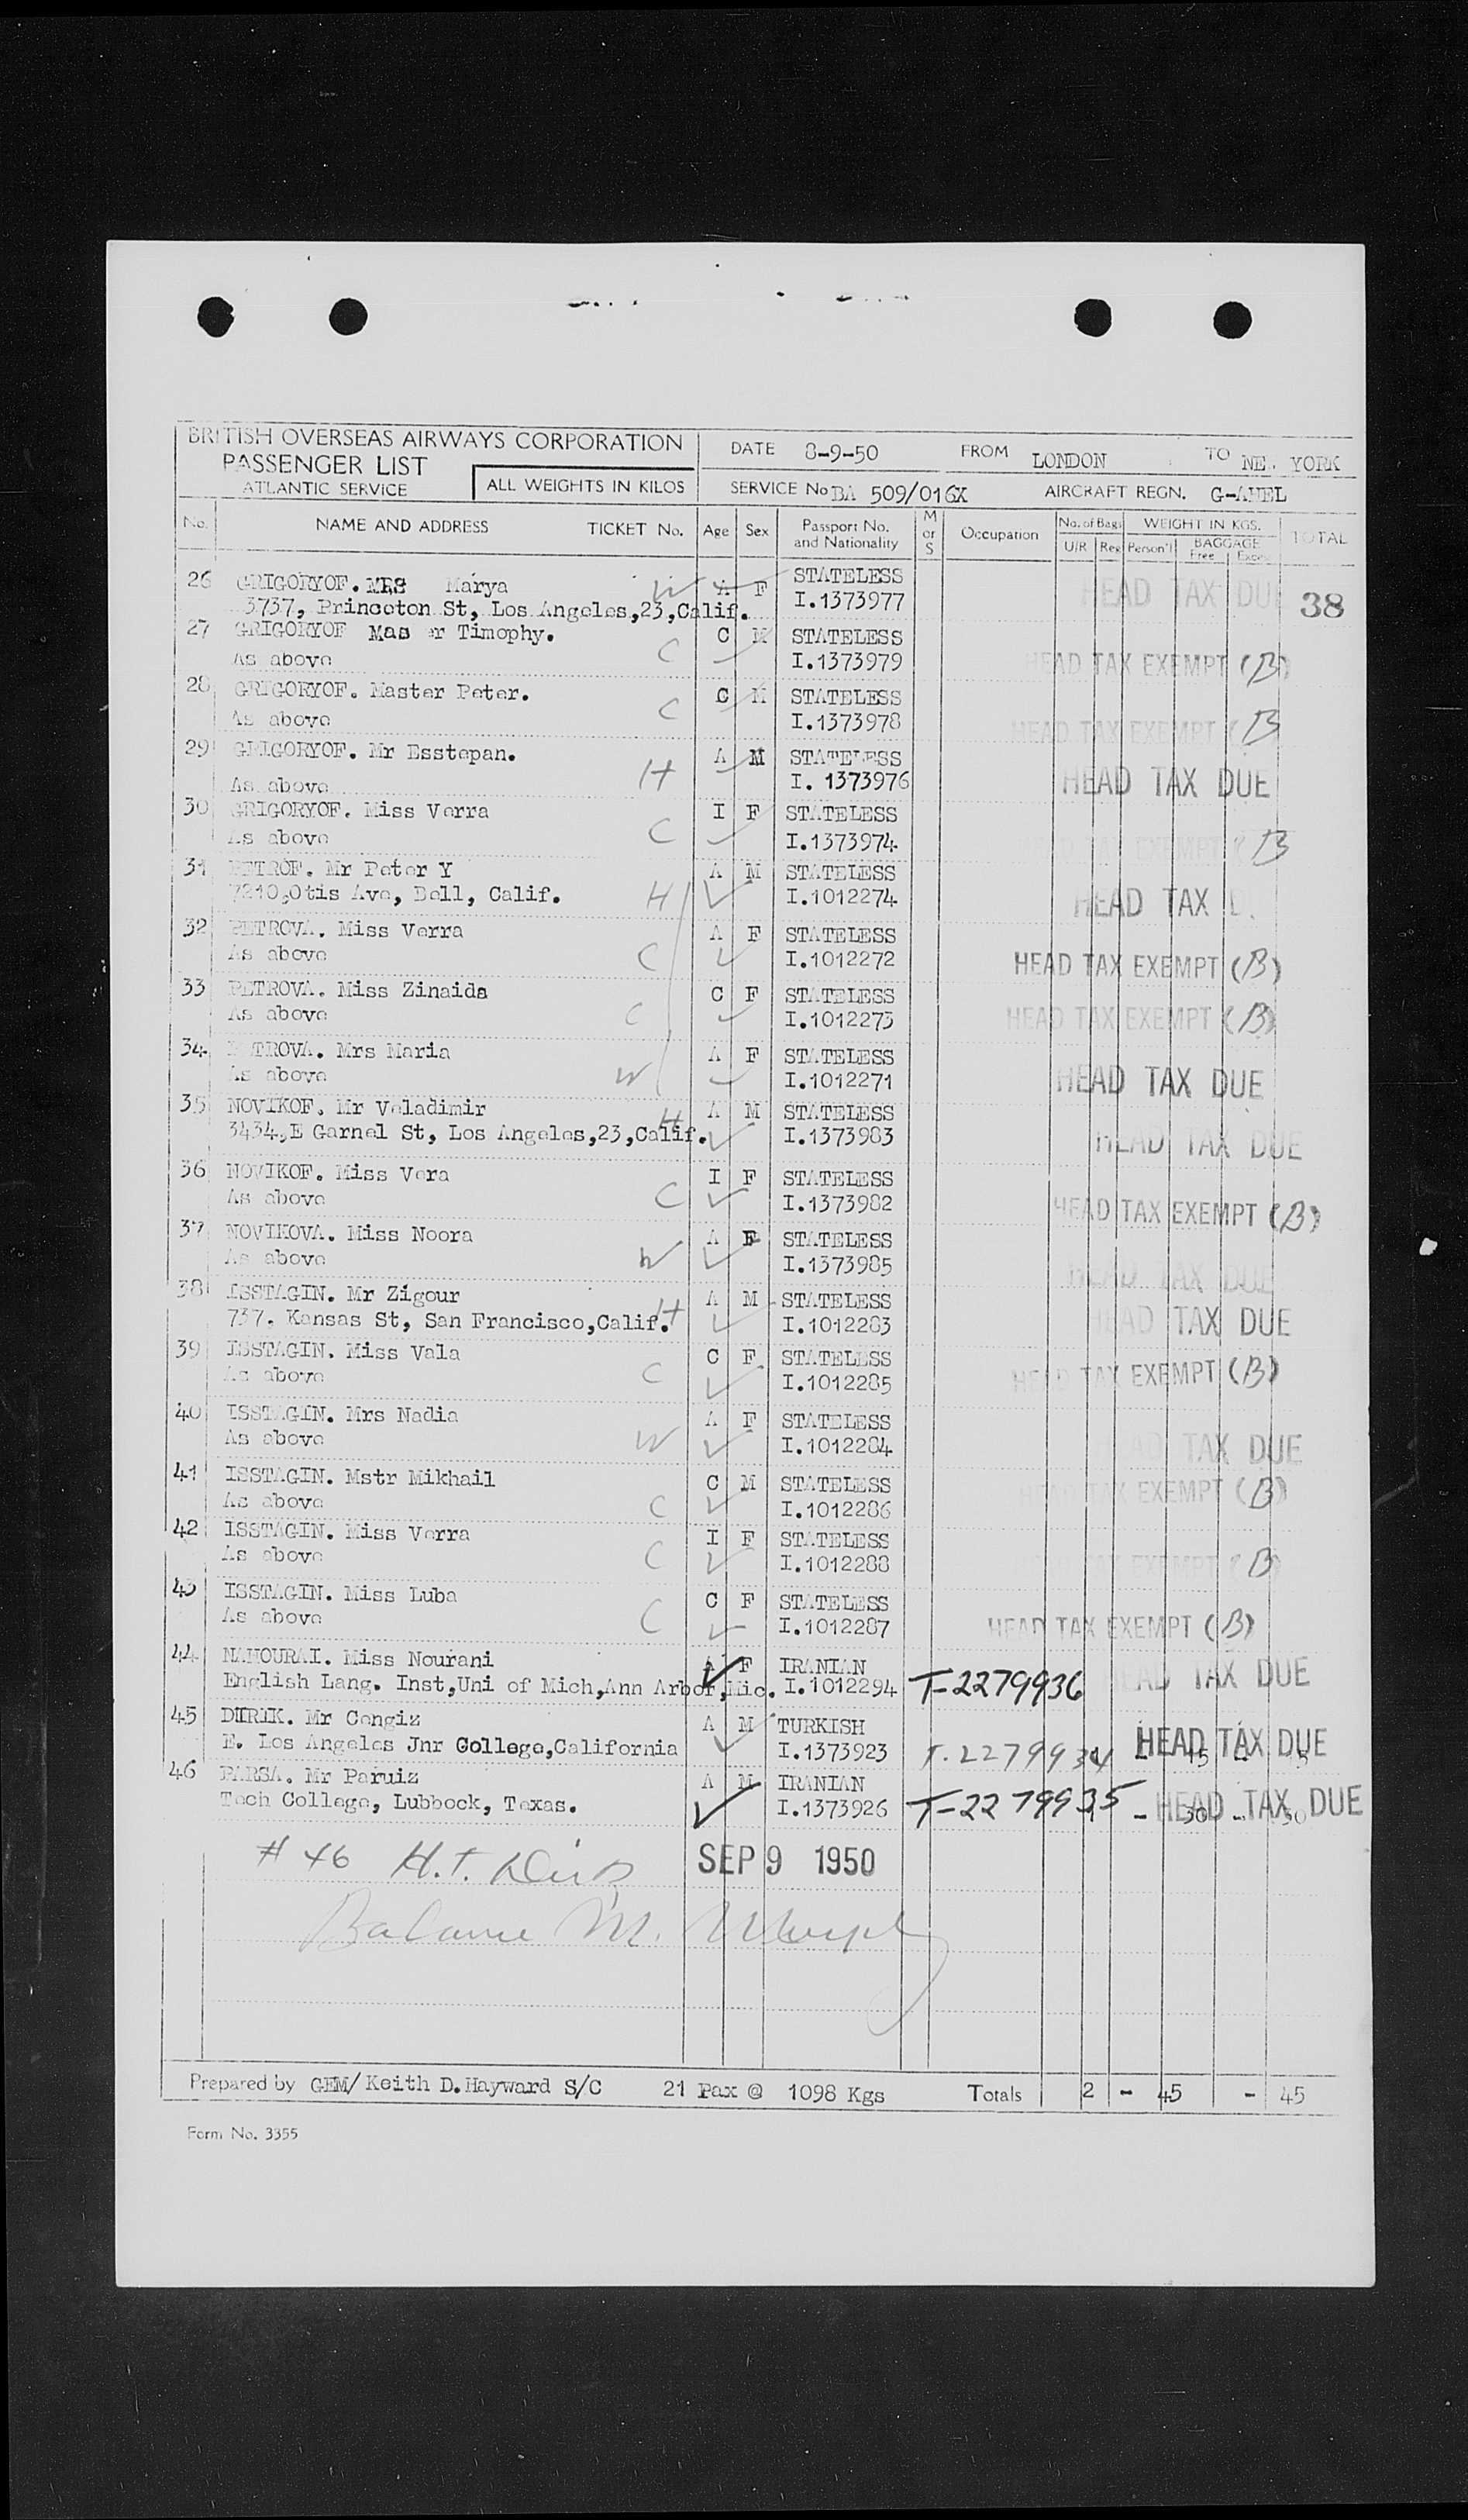 BRITISH OVERSEAS AIRWAYS CORPORATION
PASSENGER LIST
ATLANTIC SERVICE
ALL WEIGHTS IN KILOS
DATE 8-9-50 FROM LONDON TO NE. YORK
SERVICE No BA 509/016X AIRCRAFT REGN. G-AHEL
No. NAME AND ADDRESS TICKET No. Age Sex Passport No. and Nationality M or S Occupation No. of Bags U/R Reg WEIGHT IN KGS. Person'l BAGGAGE Free Excess TOTAL
26 GRIGORYOF. MRS Marya W A F STATELESS HEAD TAX DUE 38
3737, Princeton St, Los Angeles,23,Calif. I.1373977
27 GRIGORYOF Mas er Timophy. C C M STATELESS
As above I.1373979 HEAD TAX EXEMPT (B)
28 GRIGORYOF. Master Peter. C C M STATELESS
As above I.1373978 HEAD TAX EXEMPT (B
29 GRIGORYOF. Mr Esstepan. H A M STATELESS
As above I. 1373976 HEAD TAX DUE
30 GRIGORYOF. Miss Verra C I F STATELESS
As above I.1373974 TAX EXEMPT (B
31 PETROF. Mr Peter Y A M STATELESS
7210,Otis Ave, Bell, Calif. H I.1012274 HEAD TAX D
32 PETROVA. Miss Verra A F STATELESS
As above C I.1012272 HEAD TAX EXEMPT (B)
33 PETROVA. Miss Zinaida C F STATELESS
As above C I.1012273 HEAD TAX EXEMPT (B)
34 PETROVA. Mrs Maria A F STATELESS
As above W I.1012271 HEAD TAX DUE
35 NOVIKOF. Mr Valadimir H A M STATELESS
3434,E Garnel St, Los Angeles,23,Calif. I.1373983 HEAD TAX DUE
36 NOVIKOF. Miss Vera I F STATELESS
As above C I.1373982 HEAD TAX EXEMPT (B)
37 NOVIKOVA. Miss Noora A F STATELESS
As above W I.1373985 HEAD TAX DUE
38 ISSTAGIN. Mr Zigour A M STATELESS
737. Kansas St, San Francisco,Calif. H I.1012283 HEAD TAX DUE
39 ISSTAGIN. Miss Vala C F STATELESS
As above C I.1012285 HEAD TAX EXEMPT (B)
40 ISSTAGIN. Mrs Nadia A F STATELESS
As above W I.1012284 HEAD TAX DUE
41 ISSTAGIN. Mstr Mikhail C M STATELESS
As above C I.1012286 HEAD TAX EXEMPT (B)
42 ISSTAGIN. Miss Verra I F STATELESS
As above C I.1012288 TAX EXEMPT (B)
43 ISSTAGIN. Miss Luba C F STATELESS
As above C I.1012287 HEAD TAX EXEMPT (B)
44 NAHOURAI. Miss Nourani A F IRANIAN
English Lang. Inst,Uni of Mich,Ann Arbor,Mic. I.1012294 T-2279936 HEAD TAX DUE
45 DURIK. Mr Cengiz A M TURKISH
E. Los Angeles Jnr College,California I.1373923 T.2279934 HEAD TAX DUE 15
46 PARSA. Mr Paruiz A M IRANIAN
Tech College, Lubbock, Texas. I.1373926 T-2279935 - 30 - 30 HEAD TAX DUE
# 46 H.T. SEP 9 1950
M.
Prepared by GEM/Keith D.Hayward S/C 21 Pax @ 1098 Kgs Totals 2 - 45 - 45
Form No. 3355